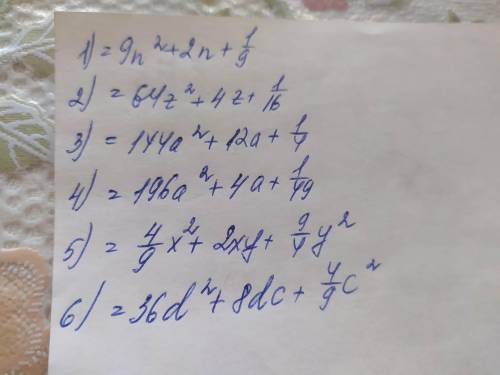 1) = 9n² + 2n + 1/9
2) = 64z² + 4z + 1/16
3) = 144a² + 12a + 1/4
4) = 196a² + 4a + 1/49
5) = 4/9 x² + 2xy + 9/4 y²
6) = 36d² + 8dc + 4/9 c²